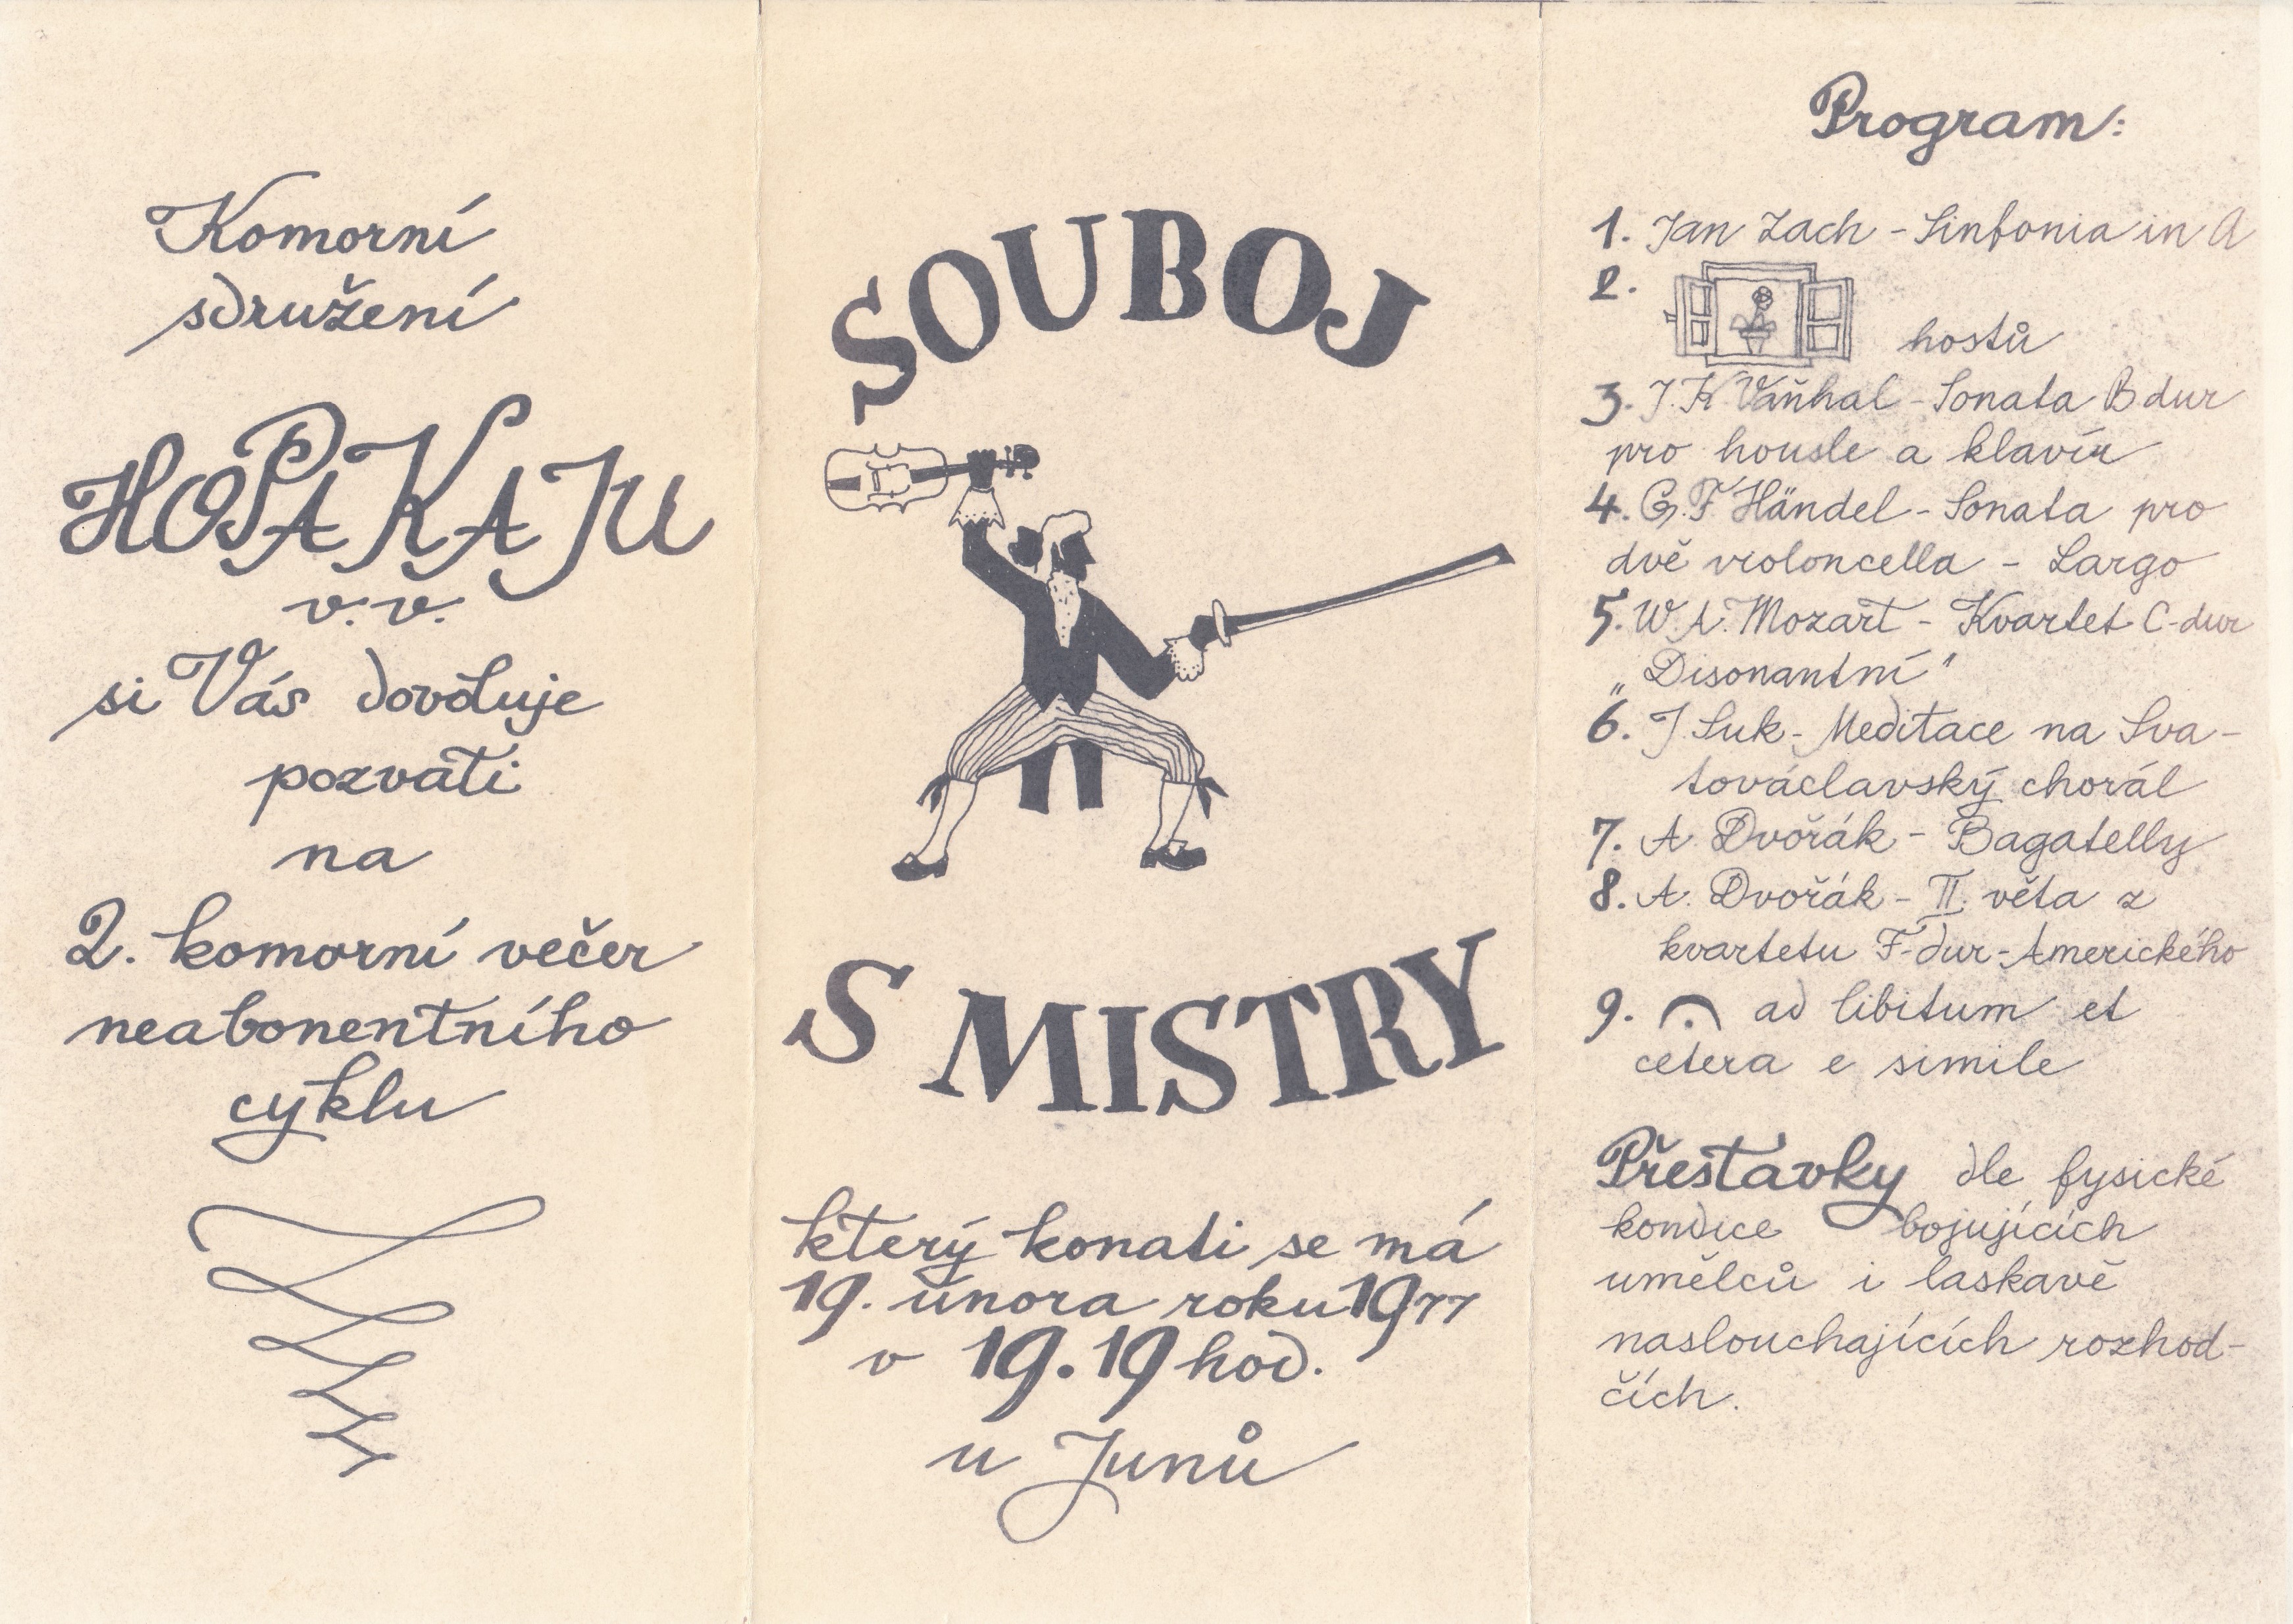 Komorní
sdružení
HOPAKAJU
v.v.
si Vás dovoluje
pozvati
na
2. komorní večer
neabonentního
cyklu
SOUBOJ
S MISTRY
který konati se má
19. února roku 1977
v 19.19 hod.
u Junů
Program:
1. Jan Zach - Sinfonia in A
2.
hostů
3. J. K Vaňhal - Sonata B dur
pro housle a klavír
4. G. F Händel - Sonata pro
dvě violoncella - Largo
5. W. A. Mozart - Kvartet C-dur
„Disonantní"
6. J. Suk - Meditace na Sva-
továclavský chorál
7. A. Dvořák - Bagatelly
8. A. Dvořák - II. věta z
kvartetu F-dur - Amerického
9. 𝄐 ad libitum et
cetera e simile
Přestávky dle fysické
kondice bojujících
umělců i laskavě
naslouchajících rozhod-
čích.